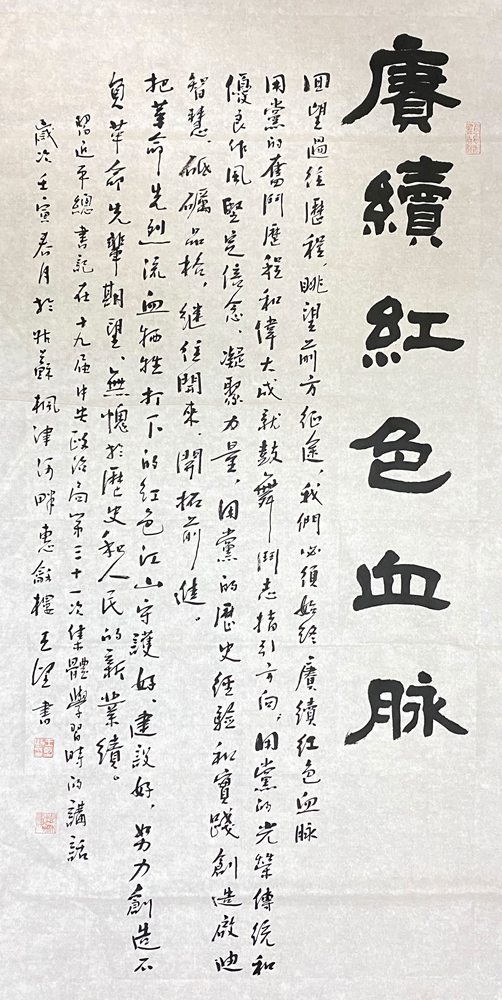 賡續紅色血脉
回望過往歷程、眺望前方征途、我們必須始終賡續紅色血脉
用黨的奮鬥歷程和偉大成就鼓舞鬥志指引方向、用黨的光榮傳統和
優良作風堅定信念、凝聚力量、用黨的歷史經驗和實踐創造啟迪
智慧、砥礪品格、繼往開來、開拓前進。
把革命先烈流血牺牲打下的紅色江山守護好、建設好，努力創造不
負革命先輩期望、無愧於歷史和人民的新業績。
習近平總書記在十九届中央政治局第三十一次集體學習時的講話
歲次壬寅春月於姑蘇楓津河畔惠敘樓 王望書